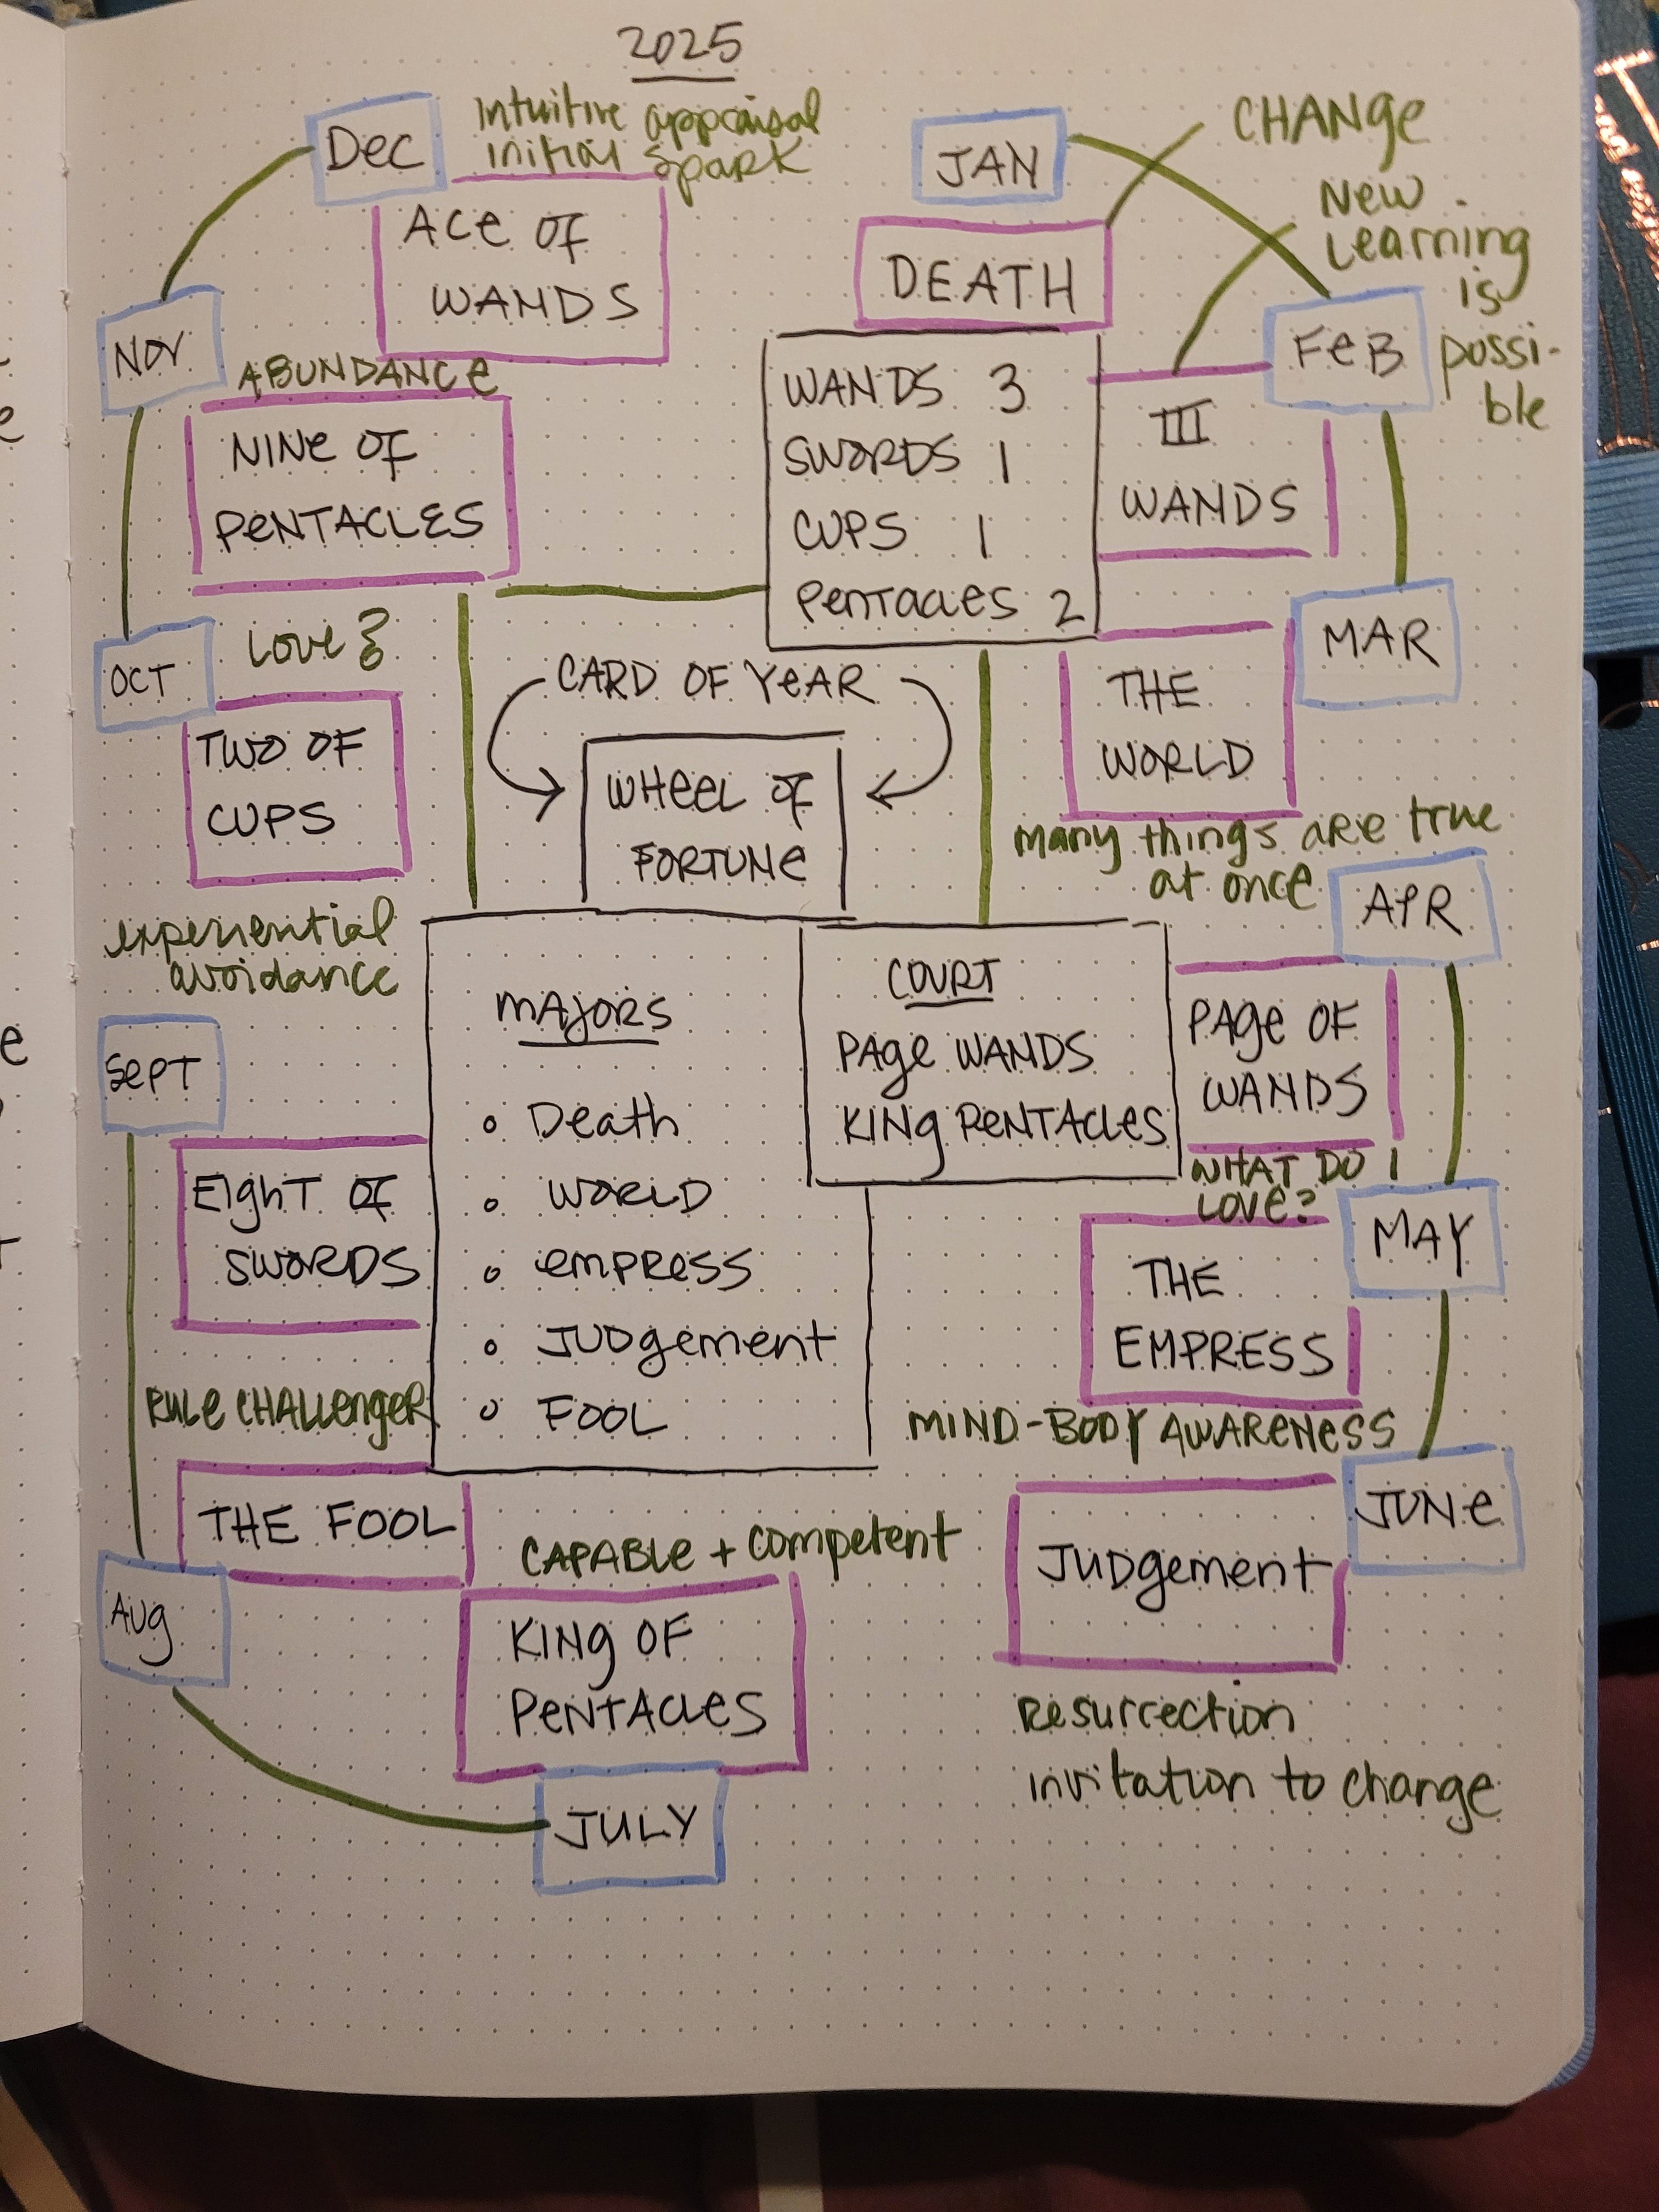 2025
Dec
Intuitive appraisal
initial spark
ACE OF
WANDS
JAN
CHANGE
DEATH
New
Learning
is
possi-
ble
FEB
III
WANDS
WANDS 3
SWORDS 1
CUPS 1
PENTACLES 2
MAR
THE
WORLD
many things are true
at once
APR
PAGE OF
WANDS
WHAT DO I
LOVE?
MAY
THE
EMPRESS
MIND-BODY AWARENESS
JUNE
JUDgement
Resurrection
invitation to change
JULY
CAPABLE + competent
KING OF
PENTACLES
AUG
RULE CHALLENGER
THE FOOL
SEPT
experiential
avoidance
EIGHT OF
SWORDS
OCT
LOVE
TWO OF
CUPS
NOV
ABUNDANCE
NINE OF
PENTACLES
CARD OF YEAR
WHEEL OF
FORTUNE
MAJORS
Death
WORLD
EMPRESS
JUDgement
FOOL
COURT
PAGE WANDS
KING PENTACLES